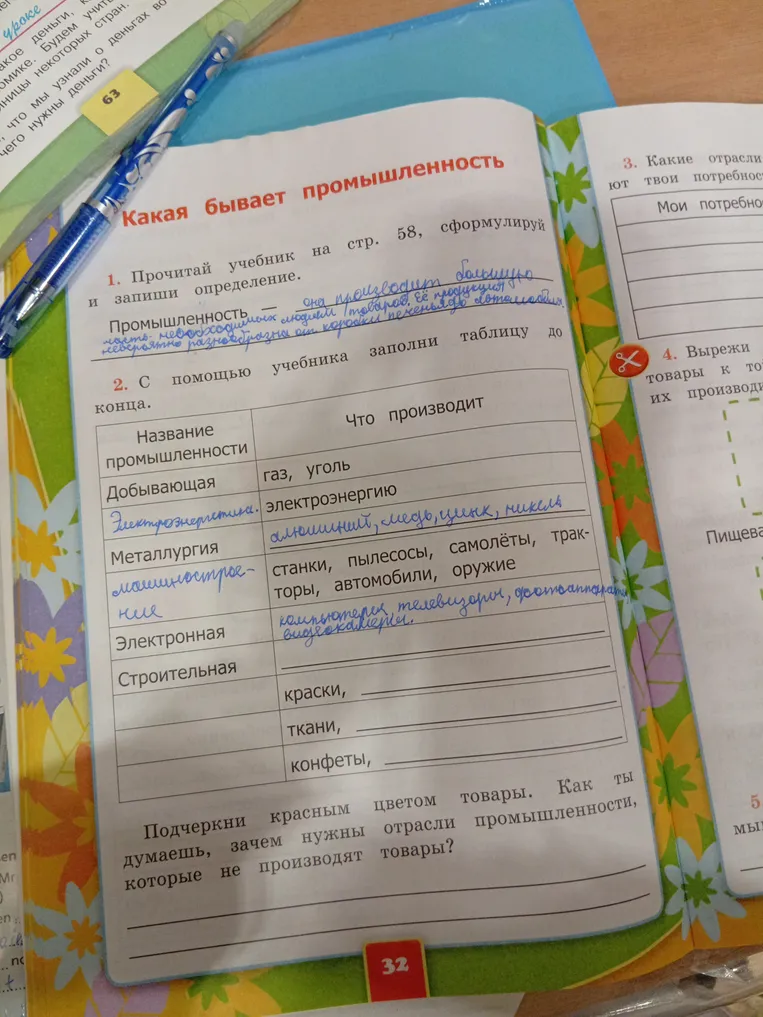 уроке
что мы узнали о деньгах во
чего нужны деньги?
63
Какая бывает промышленность
1. Прочитай учебник на стр. 58, сформулируй
и запиши определение.
Промышленность — она производит большую
часть необходимых людям товаров. Её продукция
невероятно разнообразна от коробки печенья до автомобиля.
2. С помощью учебника заполни таблицу до
конца.
Название промышленности
Что производит
Добывающая
газ, уголь
Электроэнергетика.
электроэнергию
Металлургия
алюминий, медь, цинк, никель
машинострое-
ние
станки, пылесосы, самолёты, трак-
торы, автомобили, оружие
Электронная
компьютеры, телевизоры, фотоаппараты
видеокамеры.
Строительная
краски,
ткани,
конфеты,
Подчеркни красным цветом товары. Как ты
думаешь, зачем нужны отрасли промышленности,
которые не производят товары?
32
3. Какие отрасли
ют твои потребнос
Мои потребно
4. Вырежи
товары к то
их производи
Пищева
5
мы